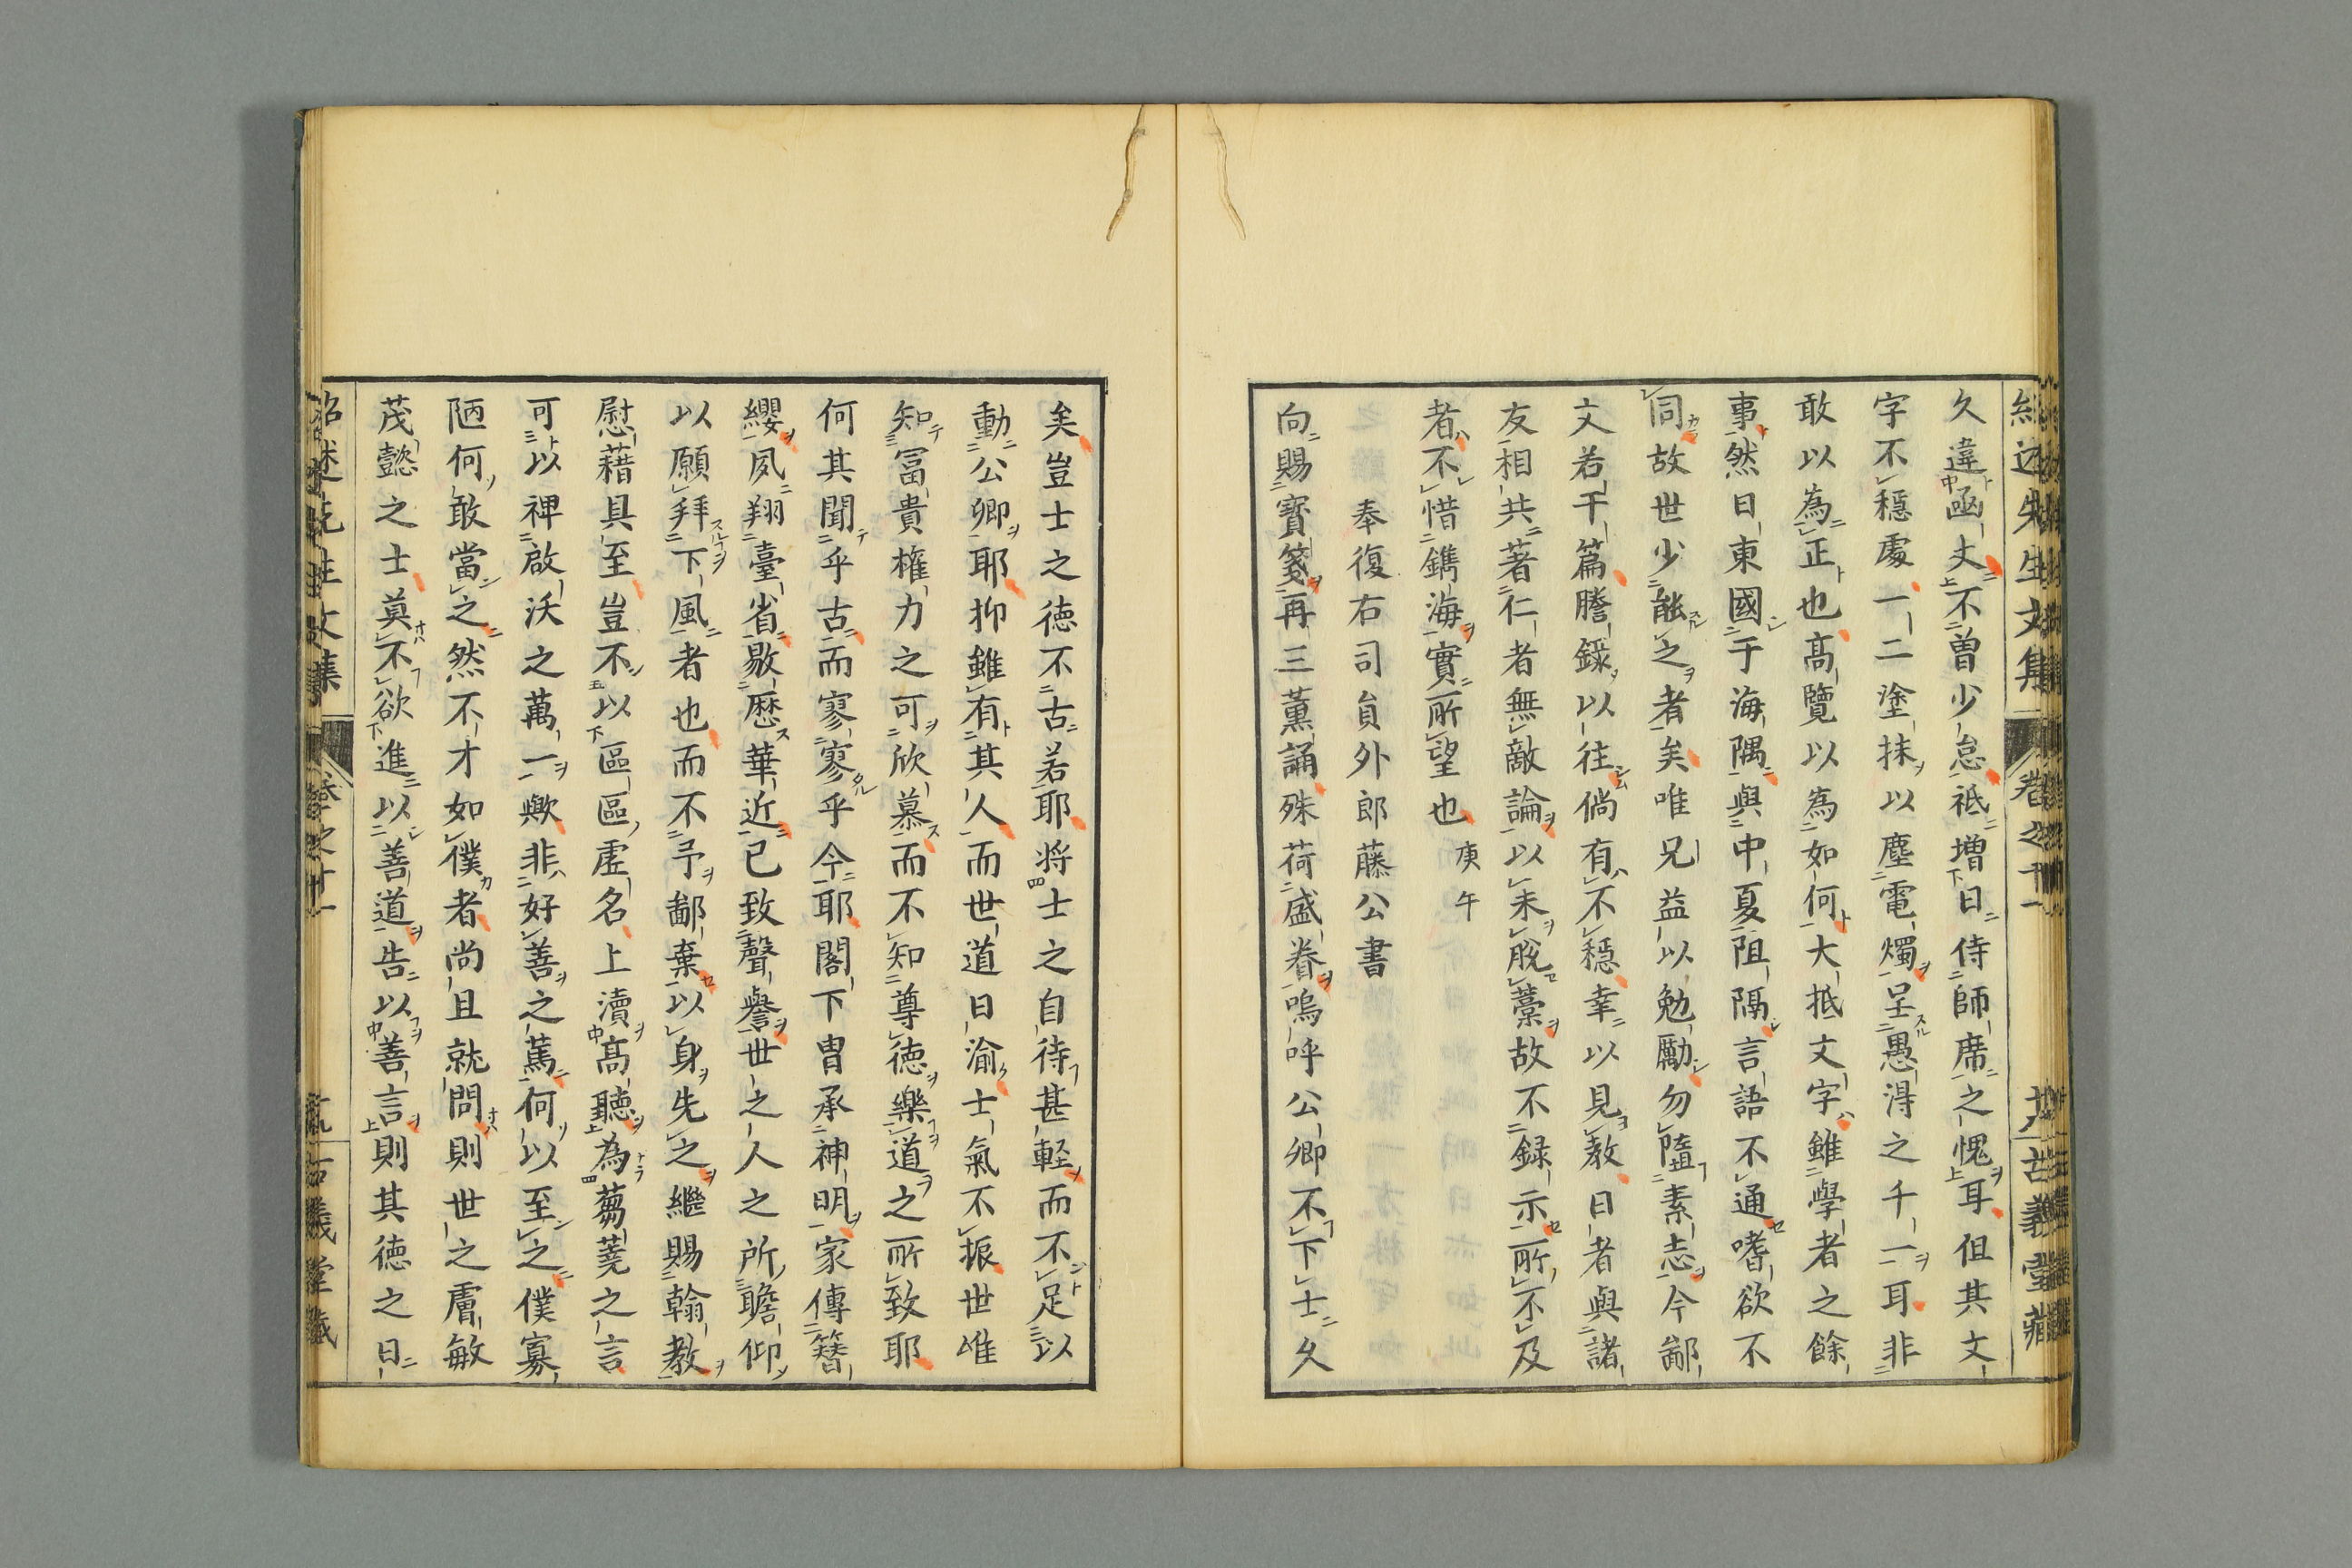 紹述先生文集 卷之十一 古義堂藏
久違函丈不曽少怠祗増日侍師席之愧耳但其文
字不穩處一二塗抹以塵電燭呈愚淂之千一耳非
敢以為正也髙覽以為如何大抵文字雖學者之餘
事然日東國于海隅與中夏阻隔言語不通嗜欲不
同故世少能之者矣唯兄益以勉勵勿隳素志今鄙
文若干篇謄錄以往倘有不穩幸以見教日者與諸
友相共著仁者無敵論以未脫藁故不録示所不及
者不惜鐫海實所望也 庚午
奉復右司員外郎藤公書
向賜寶箋再三薰誦殊荷盛眷嗚呼公卿不下士久
矣豈士之徳不古若耶将士之自待甚輕而不足以
動公卿耶抑雖有其人而世道日渝士氣不振世唯
知冨貴權力之可欣慕而不知尊徳樂道之所致耶
何其聞乎古而寥寥乎今耶閣下胄承神明家傳簪
纓夙翔臺省歇歴華近已致聲譽世之人之所瞻仰
以願拜下風者也而不予鄙棄以身先之繼賜翰教
慰藉具至豈不以區區虚名上瀆髙聽為蒭蕘之言
可以裨啟沃之萬一歟非好善之篤何以至之僕寡
陋何敢當之然不才如僕者尚且就問則世之膚敏
茂懿之士莫不欲進以善道告以善言則其徳之日
紹述先生文集 卷之十一 古義堂藏